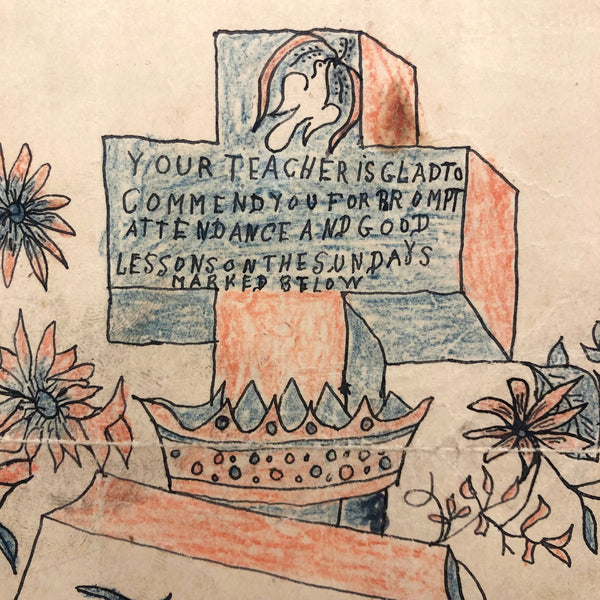 YOUR TEACHER IS GLAD TO
COMMEND YOU FOR PROMPT
ATTENDANCE AND GOOD
LESSONS ON THE SUNDAYS
MARKED BELOW